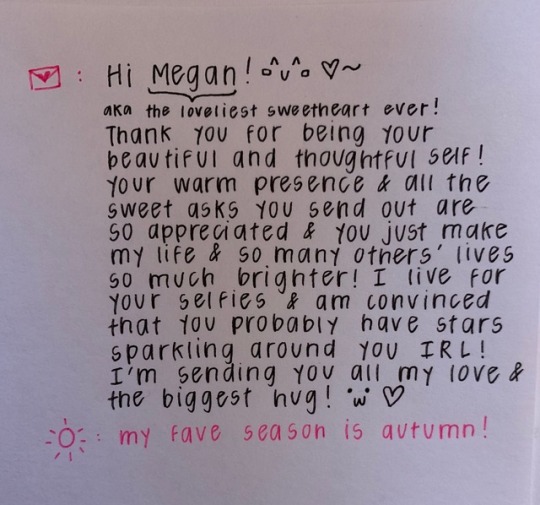 : Hi Megan! ♡~
aka the loveliest sweetheart ever!
Thank you for being your
beautiful and thoughtful self!
your warm presence & all the
sweet asks you send out are
so appreciated & you just make
my life & so many others' lives
so much brighter! I live for
your selfies & am convinced
that you probably have stars
sparkling around you IRL!
I'm sending you all my love &
the biggest hug! ♡
: my fave season is autumn!